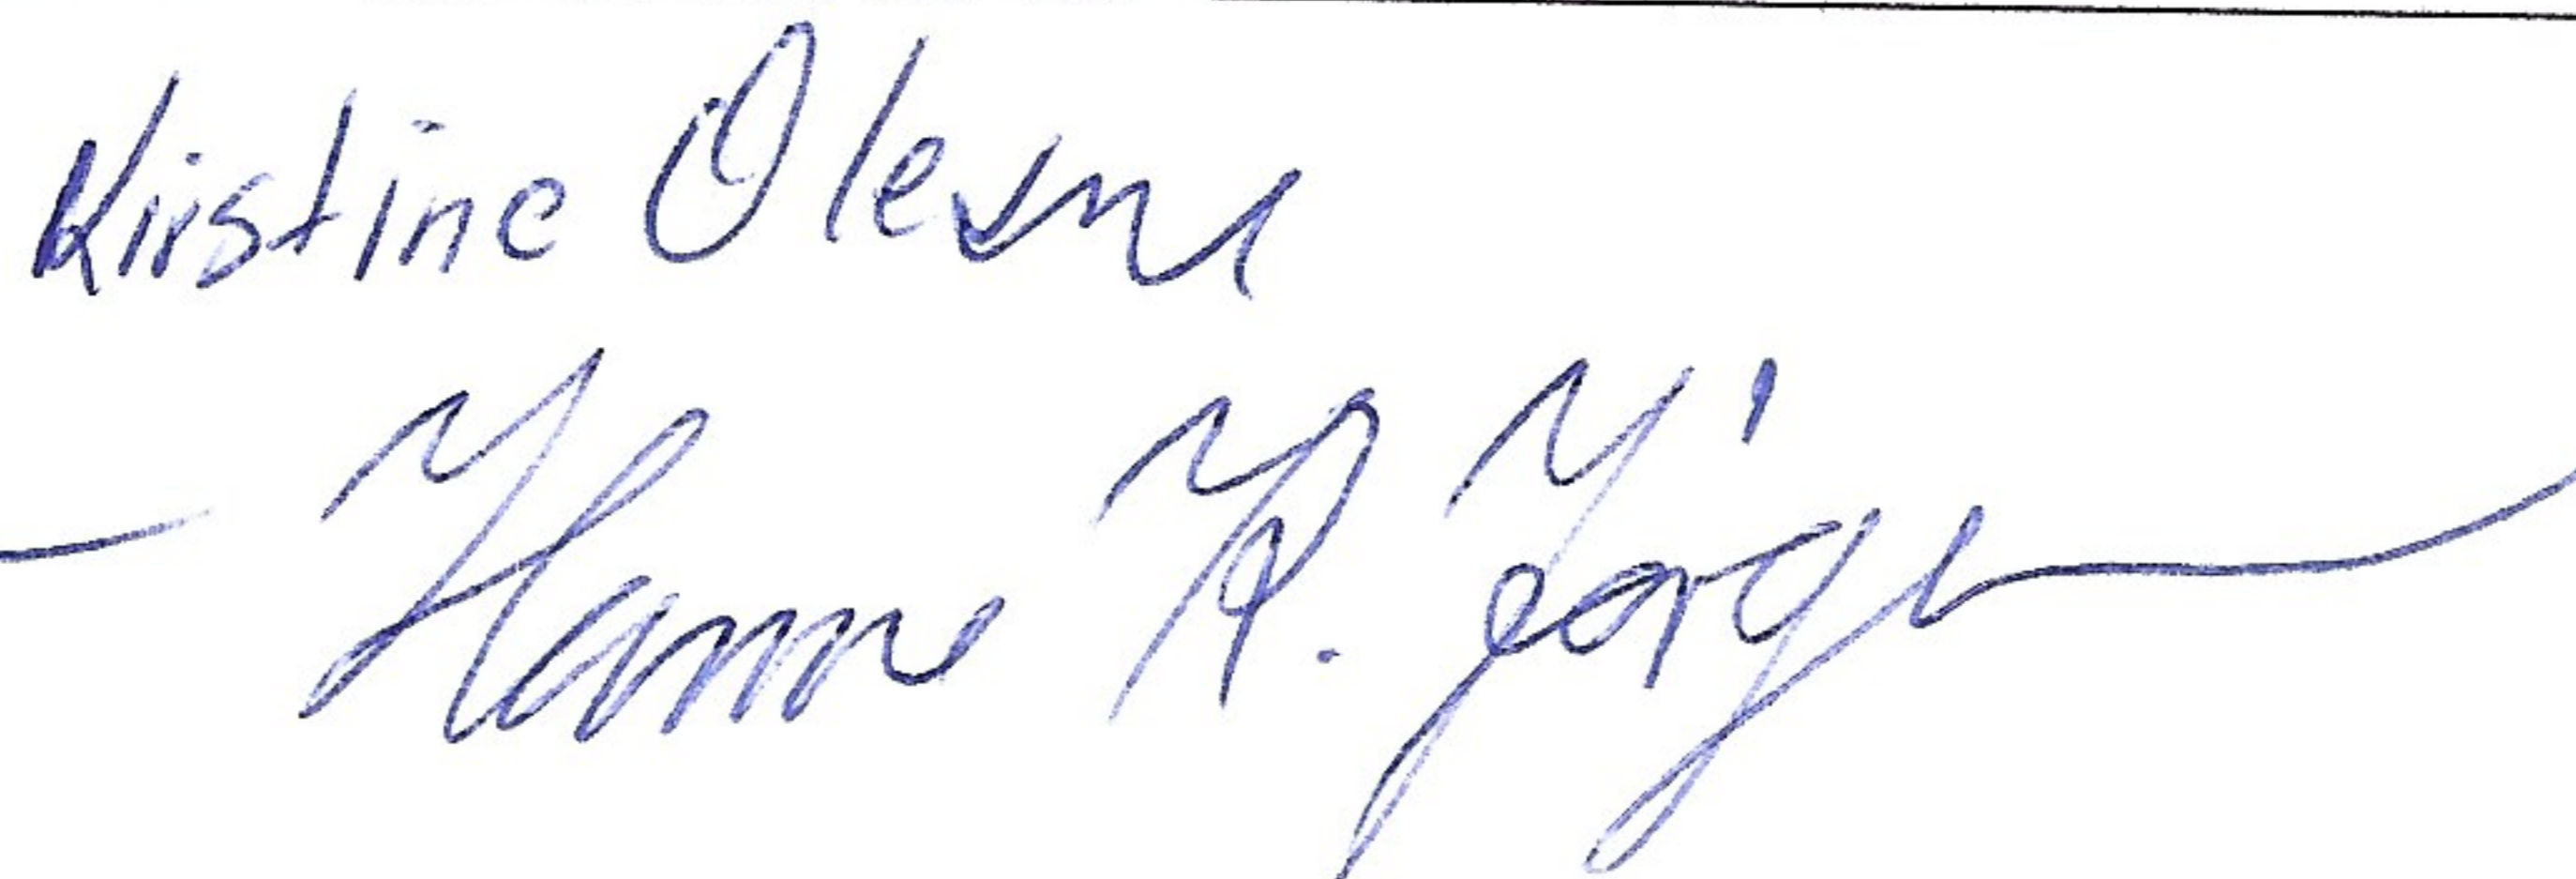 Kirstine Olesen
Hanne R. Jørgensen